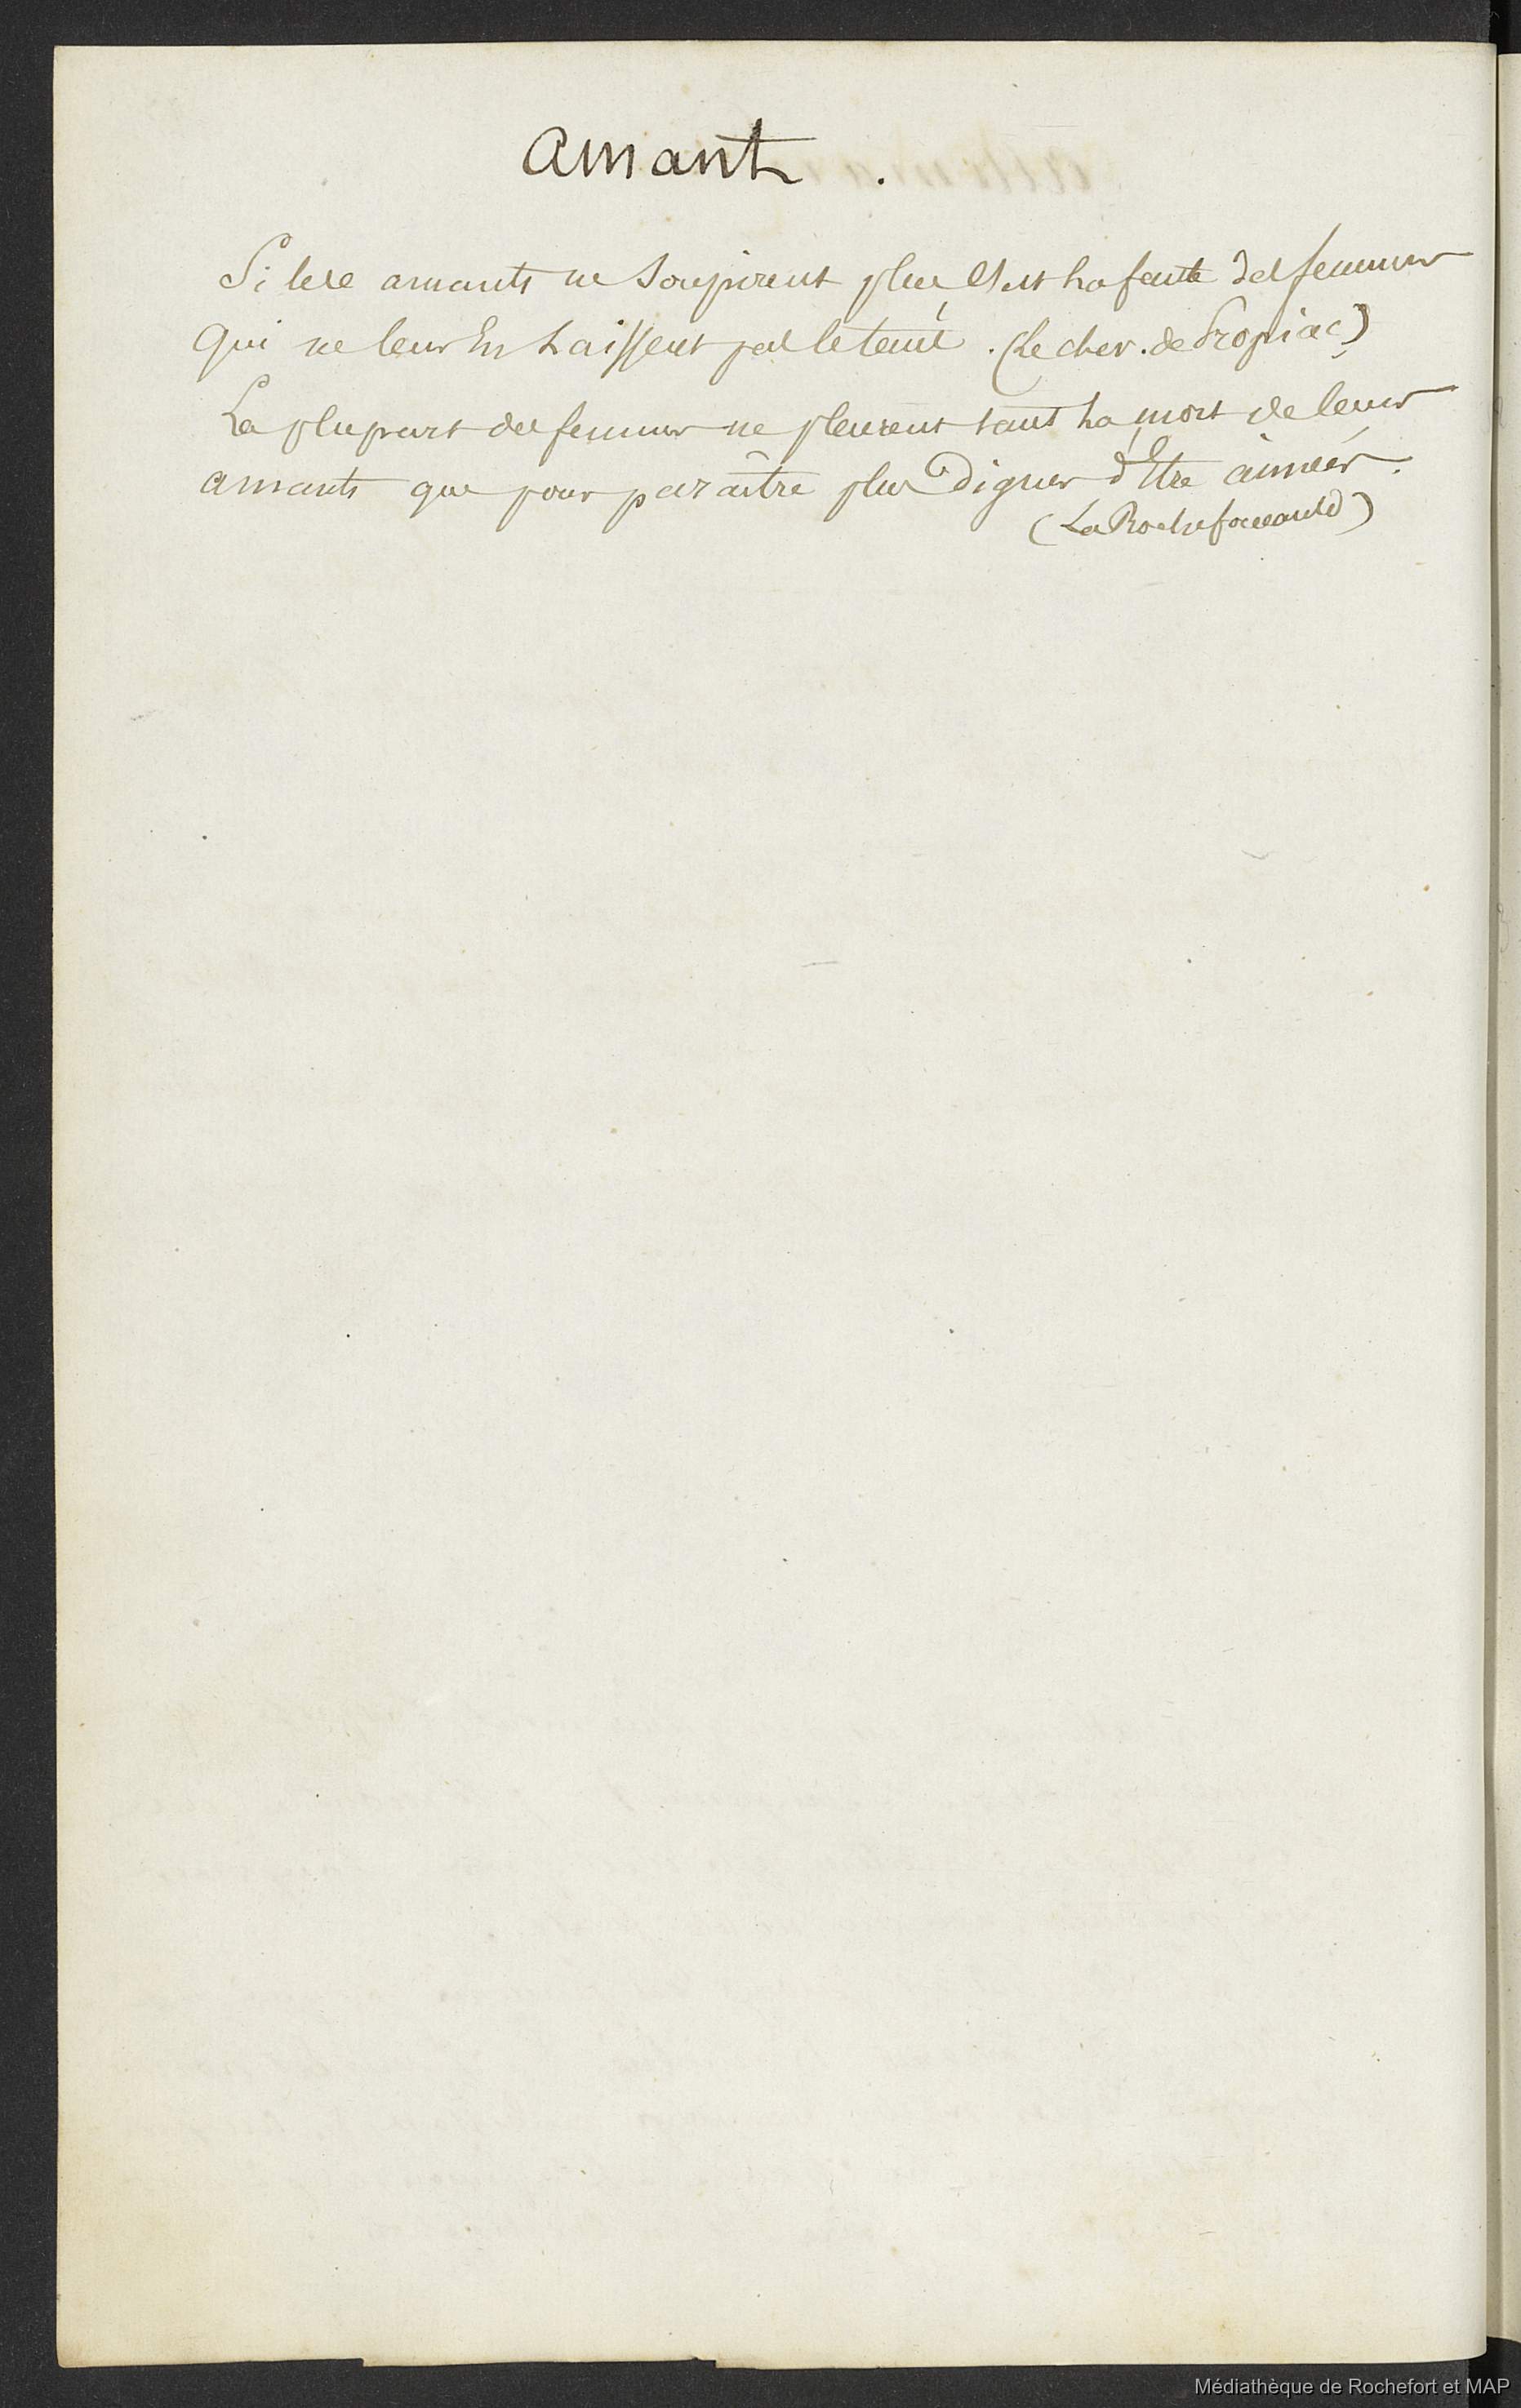 Amant.
Si les amants ne soupirent plus c'est la faute des femmes
qui ne leur en laissent pas le tems. (Le chev. de Propiac)
La plupart des femmes ne pleurent tant la mort de leurs
amants que pour paraître plus dignes d'être aimées.
(La Rochefoucauld)
Médiathèque de Rochefort et MAP